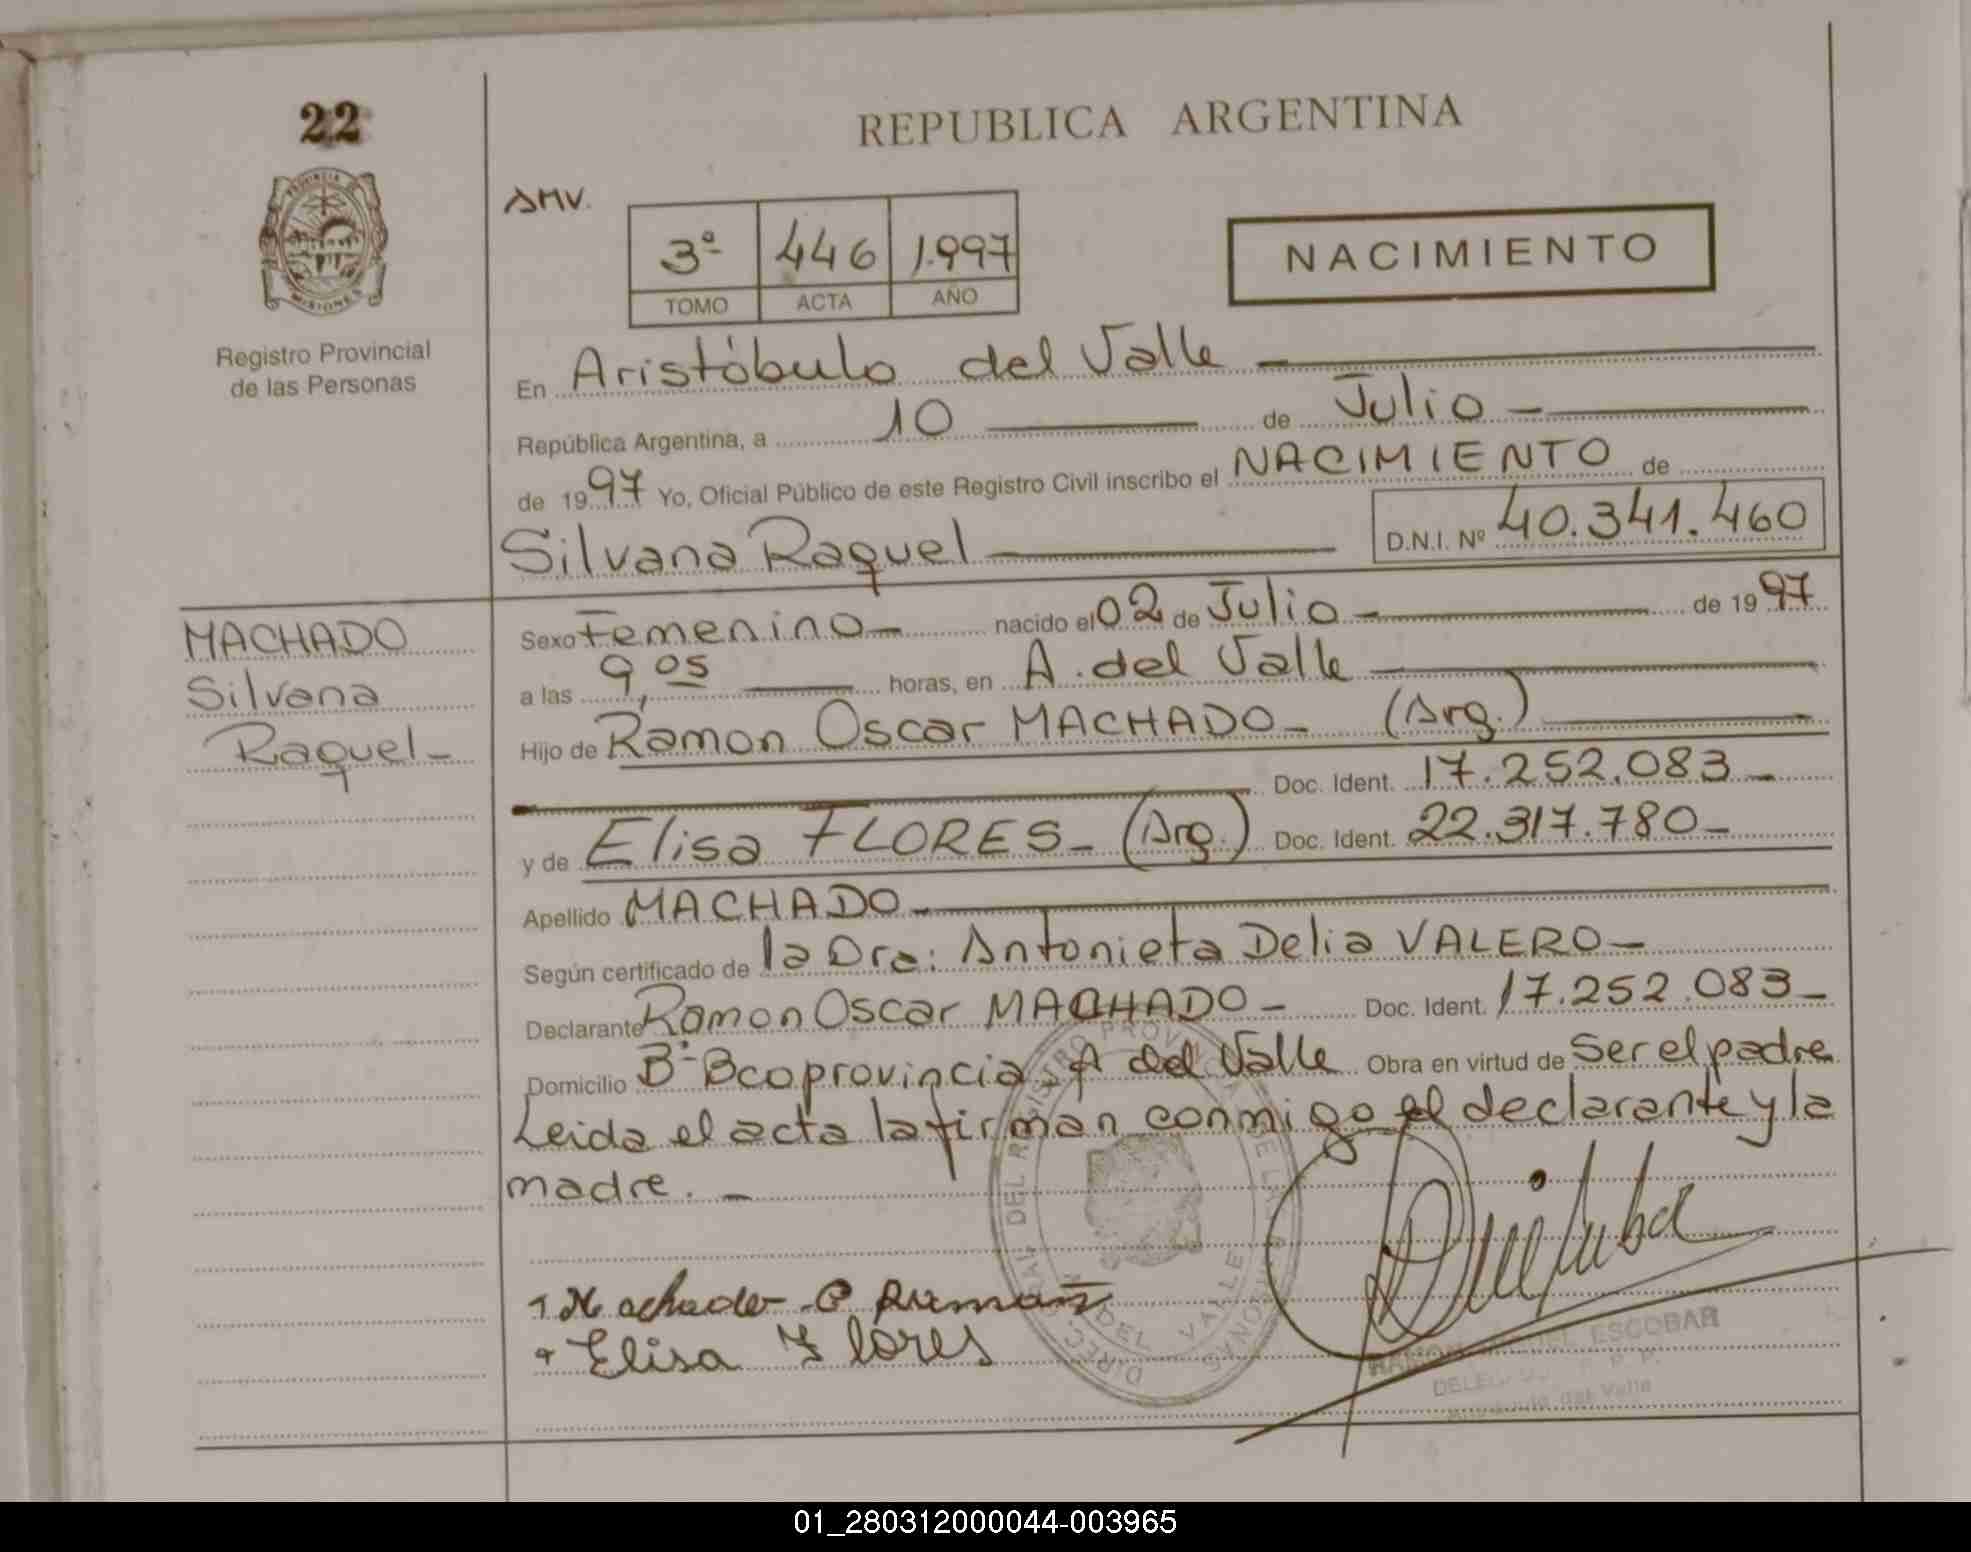 22
PROVINCIA DE
MISIONES
Registro Provincial
de las Personas
REPUBLICA ARGENTINA
SMV.
3ª 446 1.997
TOMO ACTA AÑO
NACIMIENTO
En Aristóbulo del Valle
República Argentina, a 10 de Julio
de 1997 Yo, Oficial Público de este Registro Civil inscribo el NACIMIENTO de
Silvana Raquel D.N.I. Nº 40.341.460
MACHADO
Silvana
Raquel
Sexo Femenino nacido el 02 de Julio de 1997
a las 9,05 horas, en A. del Valle
Hijo de Ramon Oscar MACHADO (Arg.)
Doc. Ident. 17.252.083
y de Elisa FLORES (Arg.) Doc. Ident. 22.317.780
Apellido MACHADO
Según certificado de la Dra: Antonieta Delia VALERO
Declarante Ramon Oscar MACHADO Doc. Ident. 17.252.083
Domicilio Bº Bcoprovincia, A del Valle Obra en virtud de Ser el padre
Leida el acta la firman conmigo el declarante y la
madre.
Machado O Ramon
Elisa Flores
DIREC. GRAL. DEL REGISTRO PROVINCIAL DE LAS PERSONAS
DEL VALLE
ESCOBAR
del Valle
01_280312000044-003965